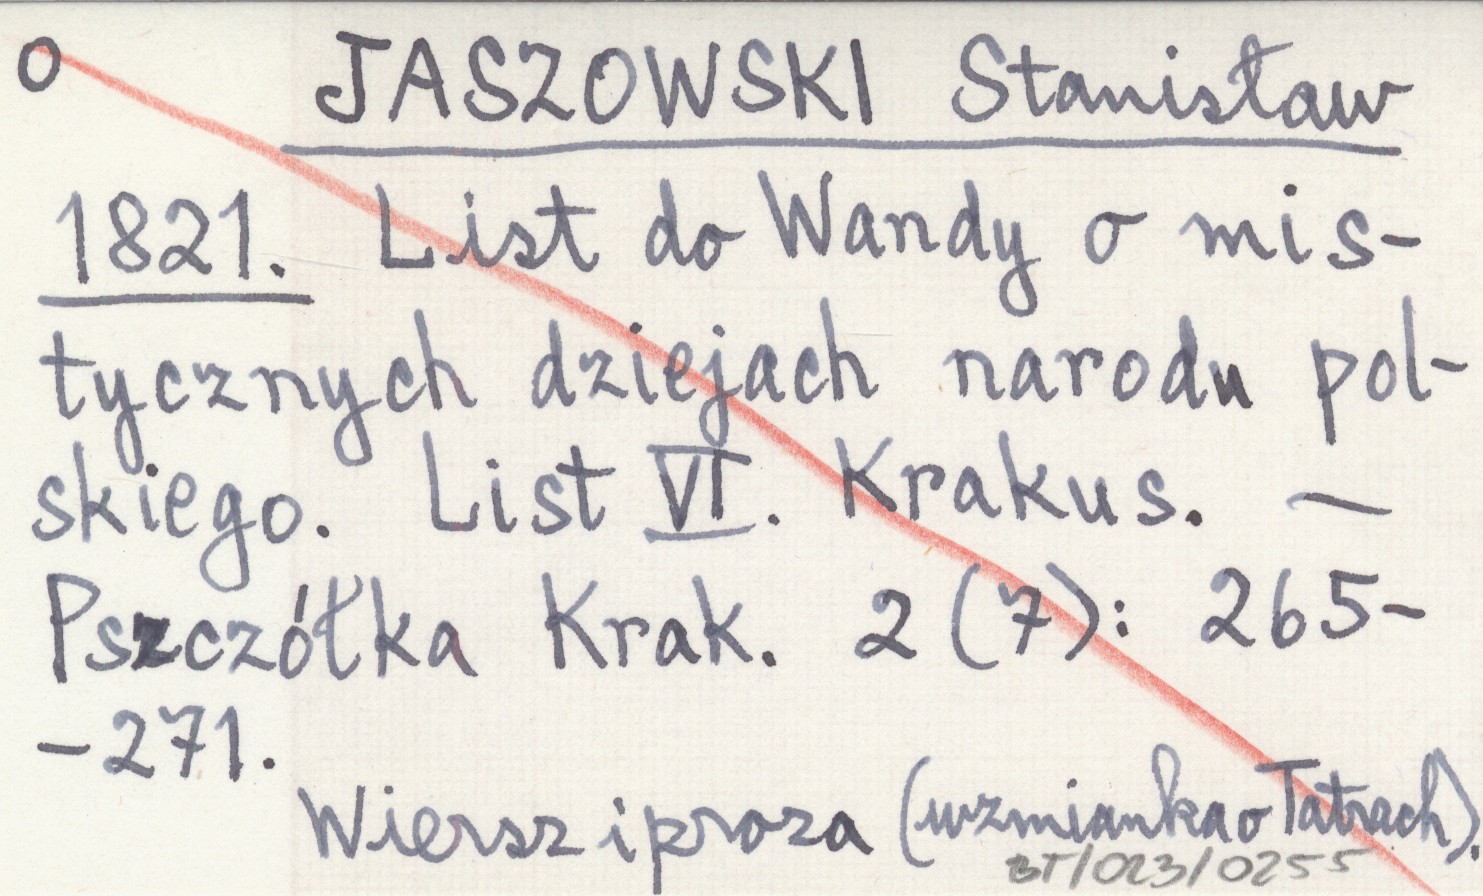 O JASZOWSKI Stanisław
1821. List do Wandy o mis-
tycznych dziejach narodu pol-
skiego. List VI. Krakus. —
Pszczółka Krak. 2 (7): 265-
-271.
Wiersz i proza (wzmianka o Tatrach).
BT/023/0255